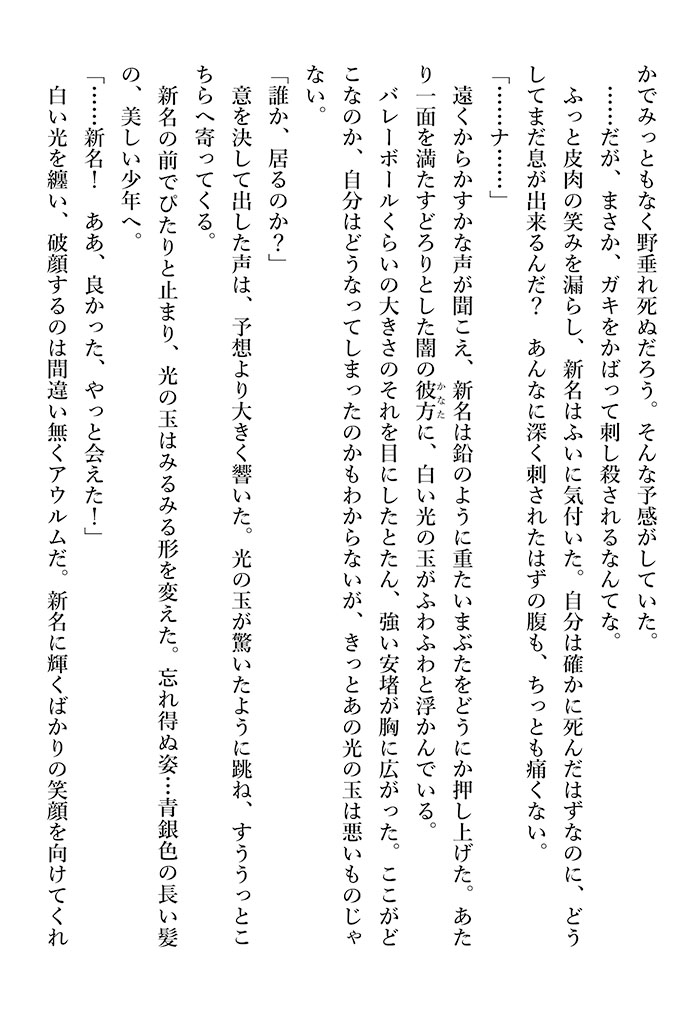 かでみっともなく野垂れ死ぬだろう。そんな予感がしていた。
……だが、まさか、ガキをかばって刺し殺されるなんてな。
ふっと皮肉の笑みを漏らし、新名はふいに気付いた。自分は確かに死んだはずなのに、どう
してまだ息が出来るんだ？　あんなに深く刺されたはずの腹も、ちっとも痛くない。
「……ナ……」
遠くからかすかな声が聞こえ、新名は鉛のように重たいまぶたをどうにか押し上げた。あた
り一面を満たすどろりとした闇の彼方かなたに、白い光の玉がふわふわと浮かんでいる。
バレーボールくらいの大きさのそれを目にしたとたん、強い安堵が胸に広がった。ここがど
こなのか、自分はどうなってしまったのかもわからないが、きっとあの光の玉は悪いものじゃ
ない。
「誰か、居るのか？」
意を決して出した声は、予想より大きく響いた。光の玉が驚いたように跳ね、すううっとこ
ちらへ寄ってくる。
新名の前でぴたりと止まり、光の玉はみるみる形を変えた。忘れ得ぬ姿…青銀色の長い髪
の、美しい少年へ。
「……新名！　ああ、良かった、やっと会えた！」
白い光を纏い、破顔するのは間違い無くアウルムだ。新名に輝くばかりの笑顔を向けてくれ